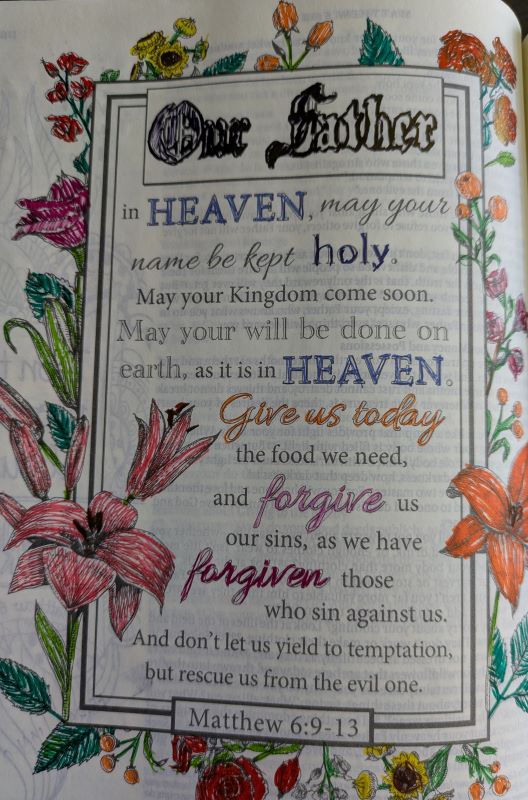 Our Father
in HEAVEN, may your
name be kept holy.
May your Kingdom come soon.
May your will be done on
earth, as it is in HEAVEN.
Give us today
the food we need,
and forgive us
our sins, as we have
forgiven those
who sin against us.
And don't let us yield to temptation,
but rescue us from the evil one.
Matthew 6:9-13